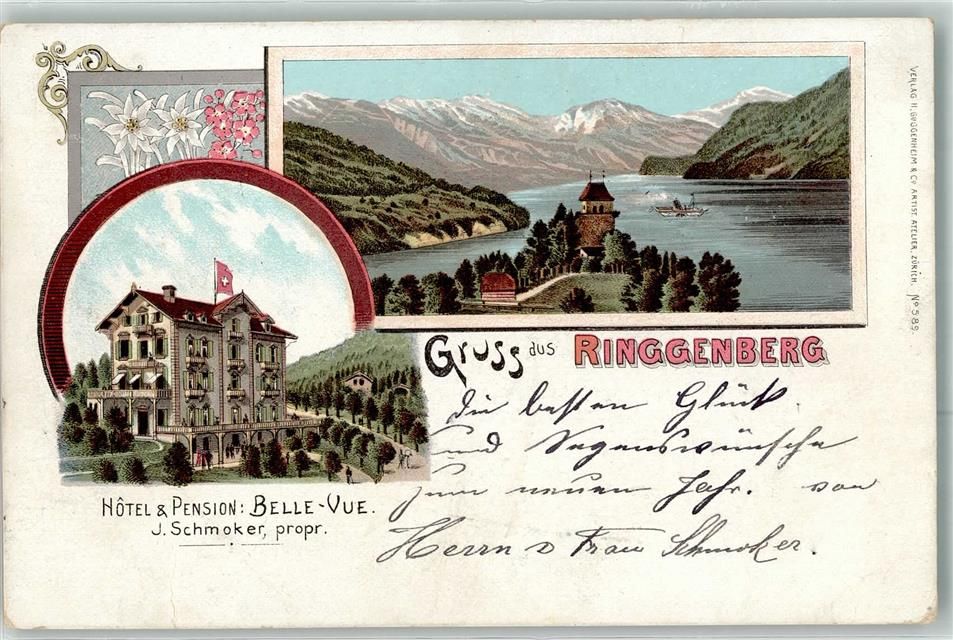 Gruss aus RINGGENBERG
Die besten Glück
und Segenswünsche
zum neuen Jahr. von
Herrn & Frau Schmoker.
HÔTEL & PENSION: BELLE-VUE.
J. Schmoker, propr.
VERLAG H. GUGGENHEIM & Co ARTIST. ATELIER, ZÜRICH. No 589.